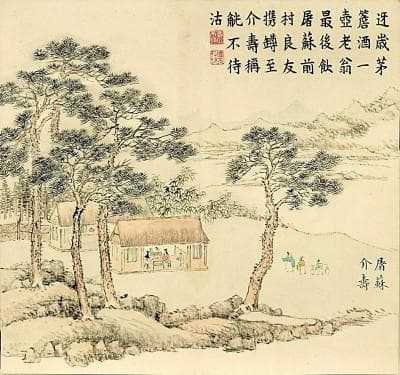 迓歲茅
簷酒一
壺老翁
最後飲
屠蘇前
村良友
携罇至
介壽稱
觥不待
沽
屠蘇
介壽